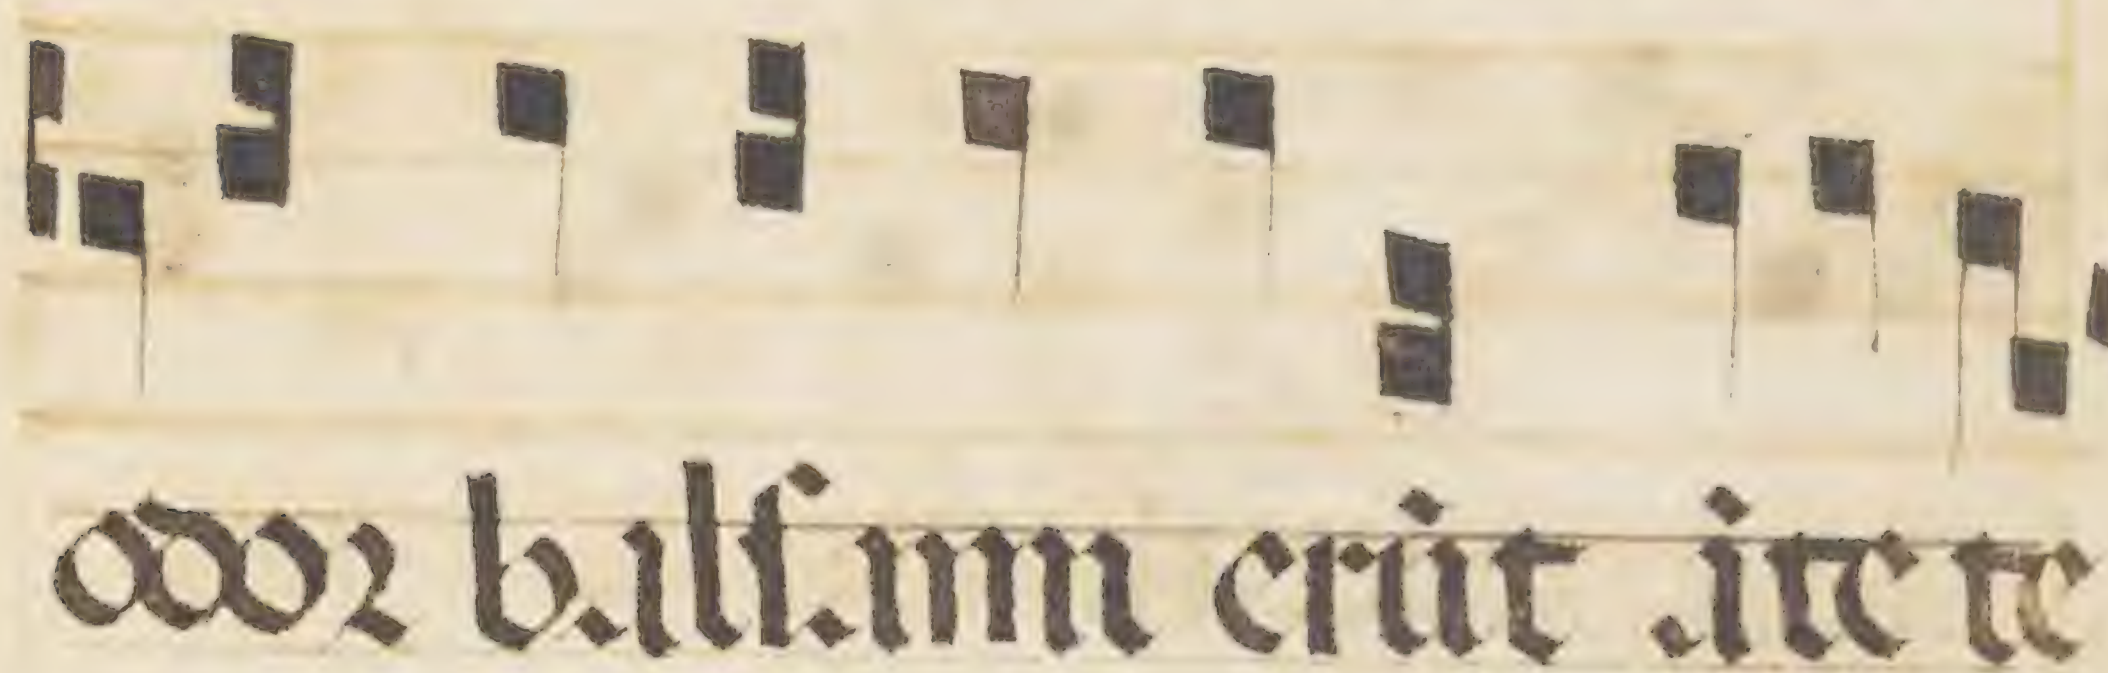 odor balſami erūt āte te